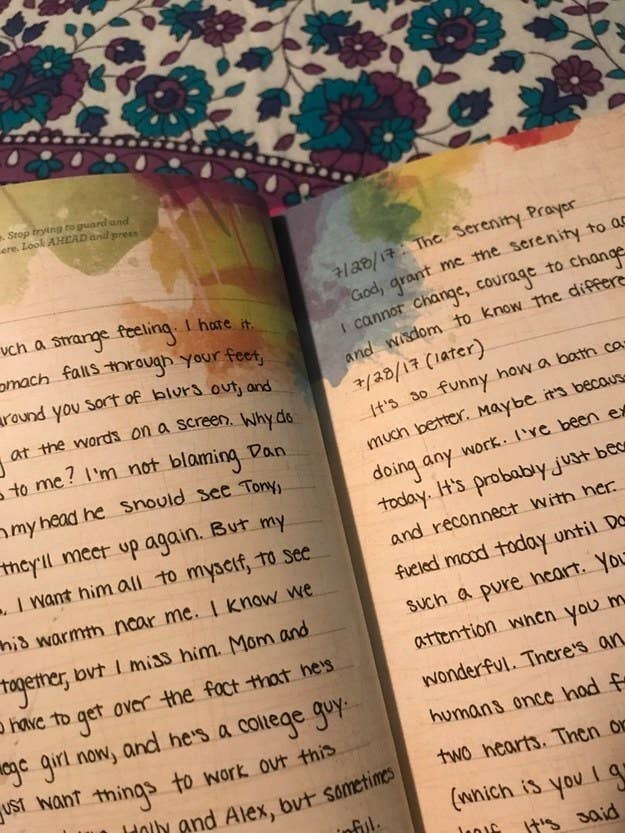 . Stop trying to guard and
ere. Look AHEAD and press
uch a strange feeling. I hate it.
omach falls through your feet,
around you sort of blurs out, and
at the words on a screen. Why do
to me? I'm not blaming Dan
my head he should see Tony,
they'll meet up again. But my
. I want him all to myself, to see
his warmth near me. I know we
together, but I miss him. Mom and
have to get over the fact that he's
lege girl now, and he's a college guy.
just want things to work out this
Holly and Alex, but sometimes
nfill.
7/28/17: The Serenity Prayer
God, grant me the serenity to ac
I cannot change, courage to change
and wisdom to know the differe
7/28/17 (later)
It's so funny how a bath ca
much better. Maybe it's becaus
doing any work. I've been ex
today. It's probably just bec
and reconnect with her.
fueled mood today until Do
such a pure heart. You
attention when you m
wonderful. There's an
humans once had f
two hearts. Then on
(which is you I g
It's said